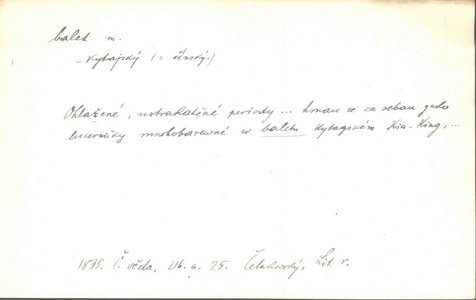 balet m.
– kytajský (= čínský.)
Ohlažené, ustrakatěné periody ... hrnau se za sebau gako
lucerničky mnohobarewné w baletu kytagském Kia-King, ...
1835. Č. včela, 216. a. 25. Čelakovský, Lit. v.